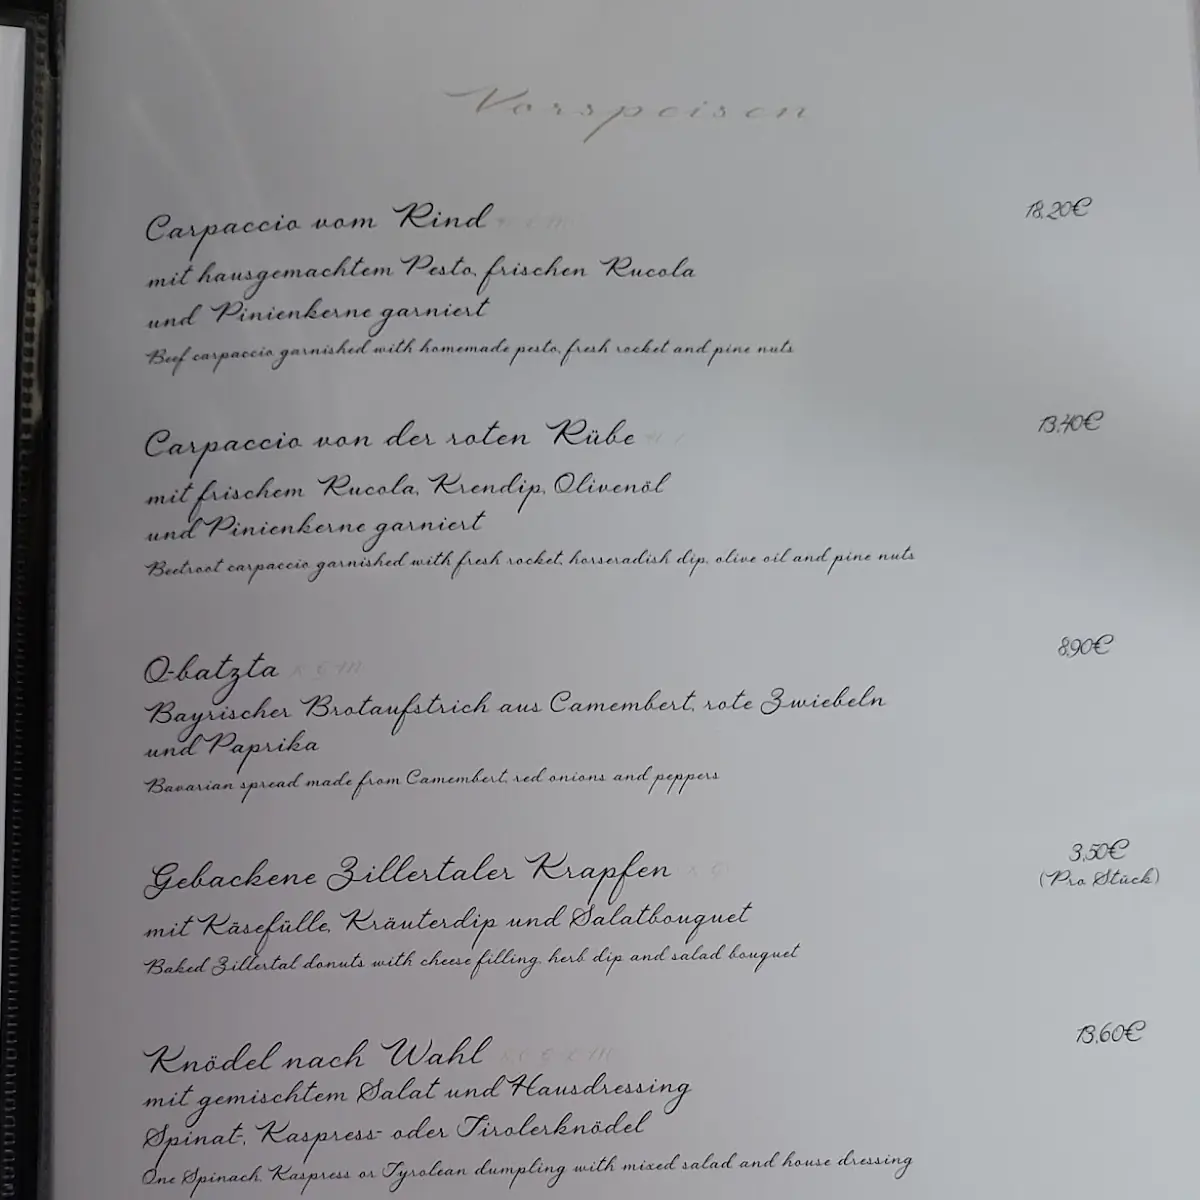 Vorspeisen
Carpaccio vom Rind
18,20€
mit hausgemachtem Pesto, frischen Rucola
und Pinienkerne garniert
Beef carpaccio garnished with homemade pesto, fresh rocket and pine nuts
Carpaccio von der roten Rübe
13,40€
mit frischem Rucola, Krendip, Olivenöl
und Pinienkerne garniert
Beetroot carpaccio garnished with fresh rocket, horseradish dip, olive oil and pine nuts
O-batzta
8,90€
Bayrischer Brotaufstrich aus Camembert, rote Zwiebeln
und Paprika
Bavarian spread made from Camembert, red onions and peppers
Gebackene Zillertaler Krapfen
3,50€
(Pro Stück)
mit Käsefülle, Kräuterdip und Salatbouquet
Baked Zillertal donuts with cheese filling, herb dip and salad bouquet
Knödel nach Wahl
13,60€
mit gemischtem Salat und Hausdressing
Spinat-, Kaspress- oder Tirolerknödel
One Spinach, Kaspress or Tyrolean dumpling with mixed salad and house dressing